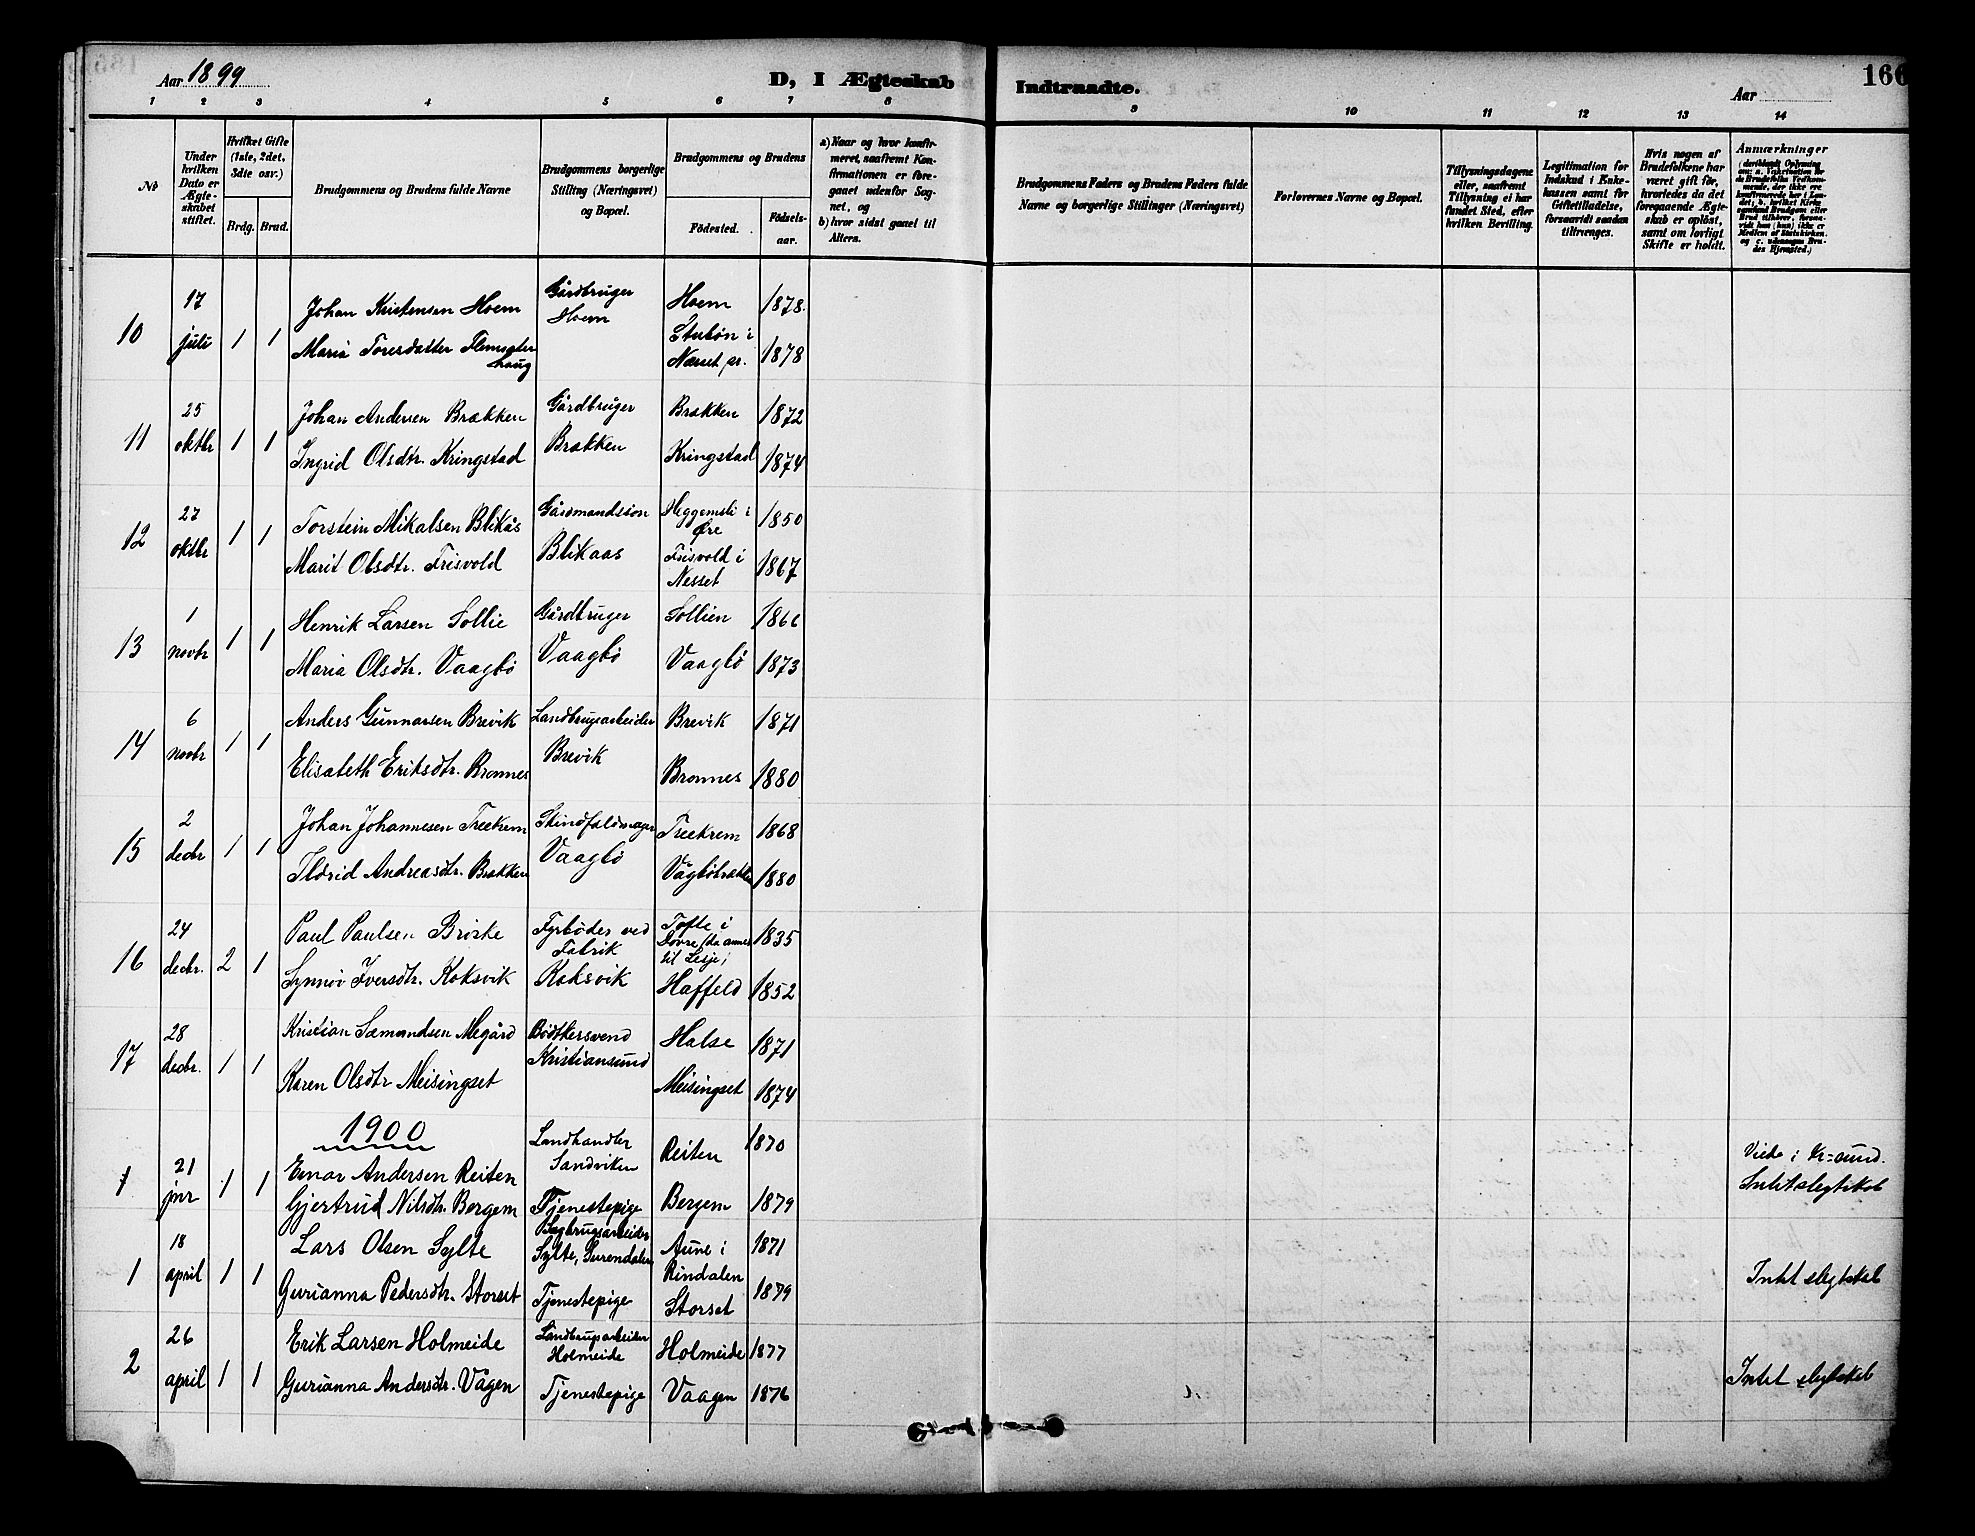 Aar 1899
D, I Ægteskab
Indtraadte.
Aar
166
1 2 3 4 5 6 7 8 9 10 11 12 13 14
No
Under hvilken Dato er Ægteskabet stiftet.
Hvilket Gifte (1ste, 2det, 3dte osv.)
Brdg. Brud.
Brudgommens og Brudens fulde Navne
Brudgommens borgerlige Stilling (Næringsvei) og Bopæl.
Brudgommens og Brudens
Fødested.
Fødsels-aar.
a) Naar og hvor konfirmeret, saafremt Konfirmationen er foregaaet udenfor Sognet, og
b) hvor sidst gaaet til Alters.
Brudgommens Faders og Brudens Faders fulde Navne og borgerlige Stillinger (Næringsvei)
Forlovernes Navne og Bopæl.
Tillysningsdagene eller, saafremt Tillysning ei har fundet Sted, efter hvilken Bevilling.
Legitimation for Indskud i Enkekassen samt for Giftetilladelse, forsaavidt saadan tiltrænges.
Hvis nogen af Brudefolkene har været gift før, hvorledes da det foregaaende Ægteskab er opløst, samt om lovligt Skifte er holdt.
Anmærkninger
10 17 juli 1 1 Johan Kristensen Hoem Gårdbruger Hoem Hoem 1878.
Maria Toresdatter Flemsæterhaug Stubøn i Næsset pr. 1878
11 25 oktbr 1 1 Johan Andersen Brækken Gårdbruger Brækken 1872
Ingrid Olsdtr. Kringstad Brækken Kringstad 1874
12 27 oktbr 1 1 Torstein Mikalsen Blikås Gårdmandssøn Heggemsli i Øre 1850
Marit Olsdtr. Frisvold Blikaas Frisvold i Nesset 1867
13 1 novbr 1 1 Henrik Larsen Sollie Gårdbruger Sollien 1866
Maria Olsdtr. Vaagbø Vaagbø Vaagbø 1873
14 6 novbr 1 1 Anders Gunnarsen Brevik Landbrugsarbeider Brevik 1871
Elisabeth Eriksdtr. Bronnes Brevik Bronnes 1880
15 2 decbr 1 1 Johan Johannesen Treekrem Skindfeldmager Treekrem 1868
Ildrid Andreasdtr. Brækken Vaagbø Vågbøbrækken 1880
16 24 decbr. 2 1 Paul Paulsen Briske Fyrbøder ved Fabrik Tofte i Dovre (da annex til Lesje) 1835
Synnøv Iversdtr. Koksvik Koksvik Haffeld 1852
17 28 decbr. 1 1 Kristian Samundsen Megård Bødtkersvend Halse 1871
Karen Olsdtr Meisingset Kristiansund Meisingset 1874
1900
1 21 jnr 1 1 Einar Andersen Reiten Landhandler Sandviken Reiten 1870 Viede i Kr=sund.
Gjertrud Nilsdtr. Bergem Tjenestepige Bergem 1879 Intet slegtskab
1 18 april 1 1 Lars Olsen Sylte Sagbrugsarbeider Sylte, Surendalen Aune i Rindalen 1871
Gurianna Pedersdtr. Storset Tjenestepige Storset 1879 Intet slegtskab
2 26 april 1 1 Erik Larsen Holmeide Landbrugsarbeider Holmeide Holmeide 1877
Gurianna Andersdtr. Vågen Tjenestepige Vaagen 1876 Intet slegtskab